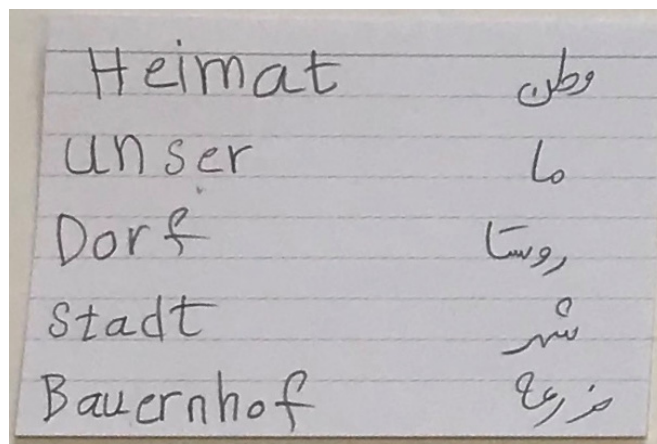 Heimat وطن
unser ما
Dorf روستا
Stadt شهر
Bauernhof مزرعه